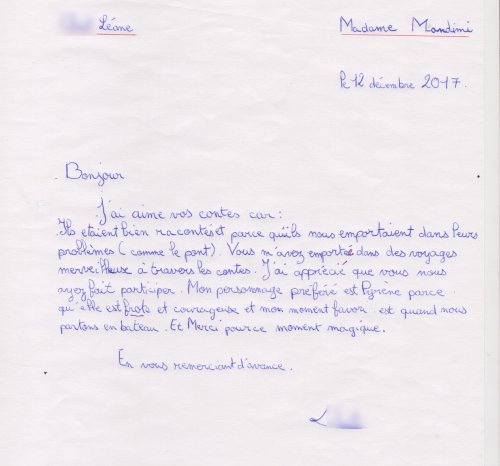 Léane
Madame Mondimi
le 12 décembre 2017.
Bonjour
J'ai aime vos contes car:
Ils etaient bien racontés et parce qu'ils nous emportaient dans leurs
problèmes (comme le pont). Vous m'avez emportée dans des voyages
merveilleuse à travers les contes. J'ai apprécié que vous nous
ayez fait participer. Mon personnage préféré est Pyrène parce
qu'elle est frote et courageuse et mon moment favori est quand nous
partons en bateau. Et Merci pour ce moment magique.
En vous remerciant d'avance.
L